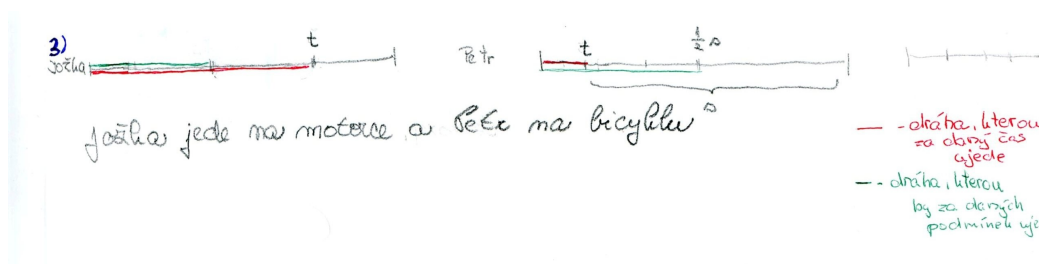 3)
Jožka
t
Petr
t
1/2 s
s
Jožka jede na motorce a Petr na bicyklu
- dráha, kterou
za daný čas
ujede
- dráha, kterou
by za daných
podmínek uje